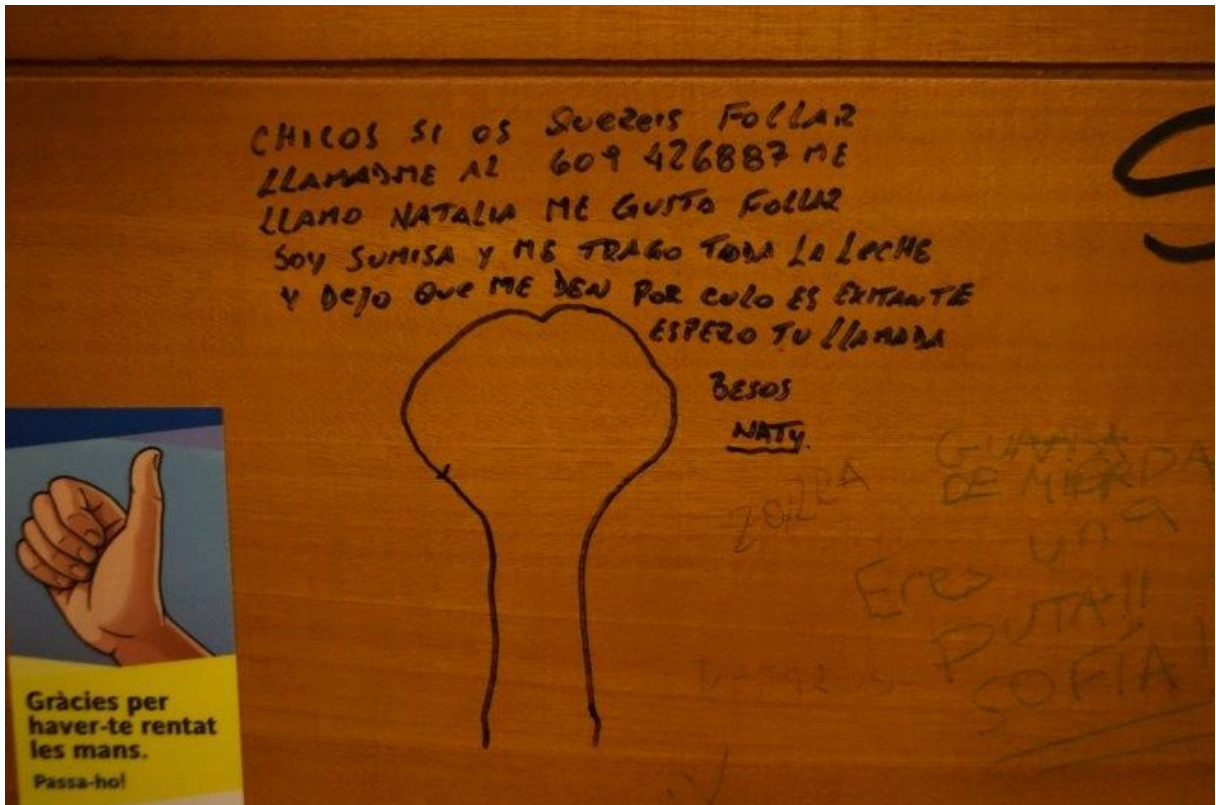 CHICOS SI OS QUEREIS FOLLAR
LLAMADME AL 609 426887 ME
LLAMO NATALIA ME GUSTA FOLLAR
SOY SUMISA Y ME TRAGO TODA LA LECHE
Y DEJO QUE ME DEN POR CULO ES EXITANTE
ESPERO TU LLAMADA
BESOS
NATY.
ZORRA
DE MIERDA
Eres una
PUTA!!
SOFÍA!
Gràcies per
haver-te rentat
les mans.
Passa-ho!